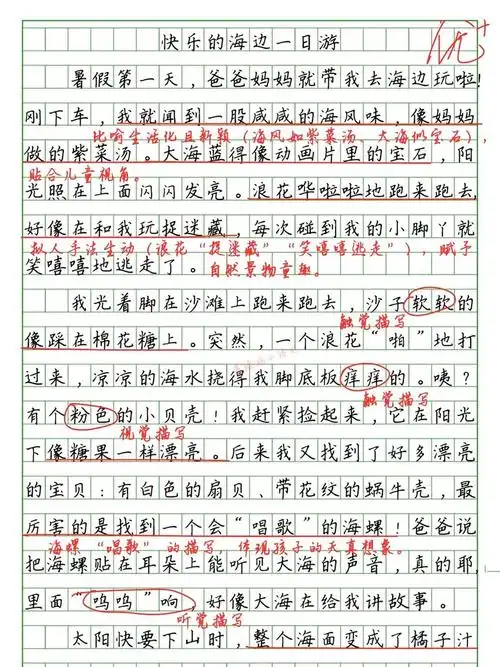 快乐的海边一日游
优+
暑假第一天，爸爸妈妈就带我去海边玩啦！
刚下车，我就闻到一股咸咸的海风味，像妈妈
比喻生活化且新颖（海风如紫菜汤，大海似宝石），
做的紫菜汤。大海蓝得像动画片里的宝石，阳
贴合儿童视角。
光照在上面闪闪发亮。浪花哗啦啦地跑来跑去，
好像在和我玩捉迷藏，每次碰到我的小脚丫就
拟人手法生动（浪花“捉迷藏”“笑嘻嘻逃走”），赋予
笑嘻嘻地逃走了。
自然景物童趣。
我光着脚在沙滩上跑来跑去，沙子软软的
触觉描写
像踩在棉花糖上。突然，一个浪花“啪”地打
过来，凉凉的海水挠得我脚底板痒痒的。咦？
触觉描写
有个粉色的小贝壳！我赶紧捡起来，它在阳光
视觉描写
下像糖果一样漂亮。后来我又找到了好多漂亮
的宝贝：有白色的扇贝、带花纹的蜗牛壳，最
厉害的是找到一个会“唱歌”的海螺！爸爸说
海螺“唱歌”的描写，体现孩子的天真想象。
把海螺贴在耳朵上能听见大海的声音，真的耶，
里面“呜呜”响，好像大海在给我讲故事。
听觉描写
太阳快要下山时，整个海面变成了橘子汁